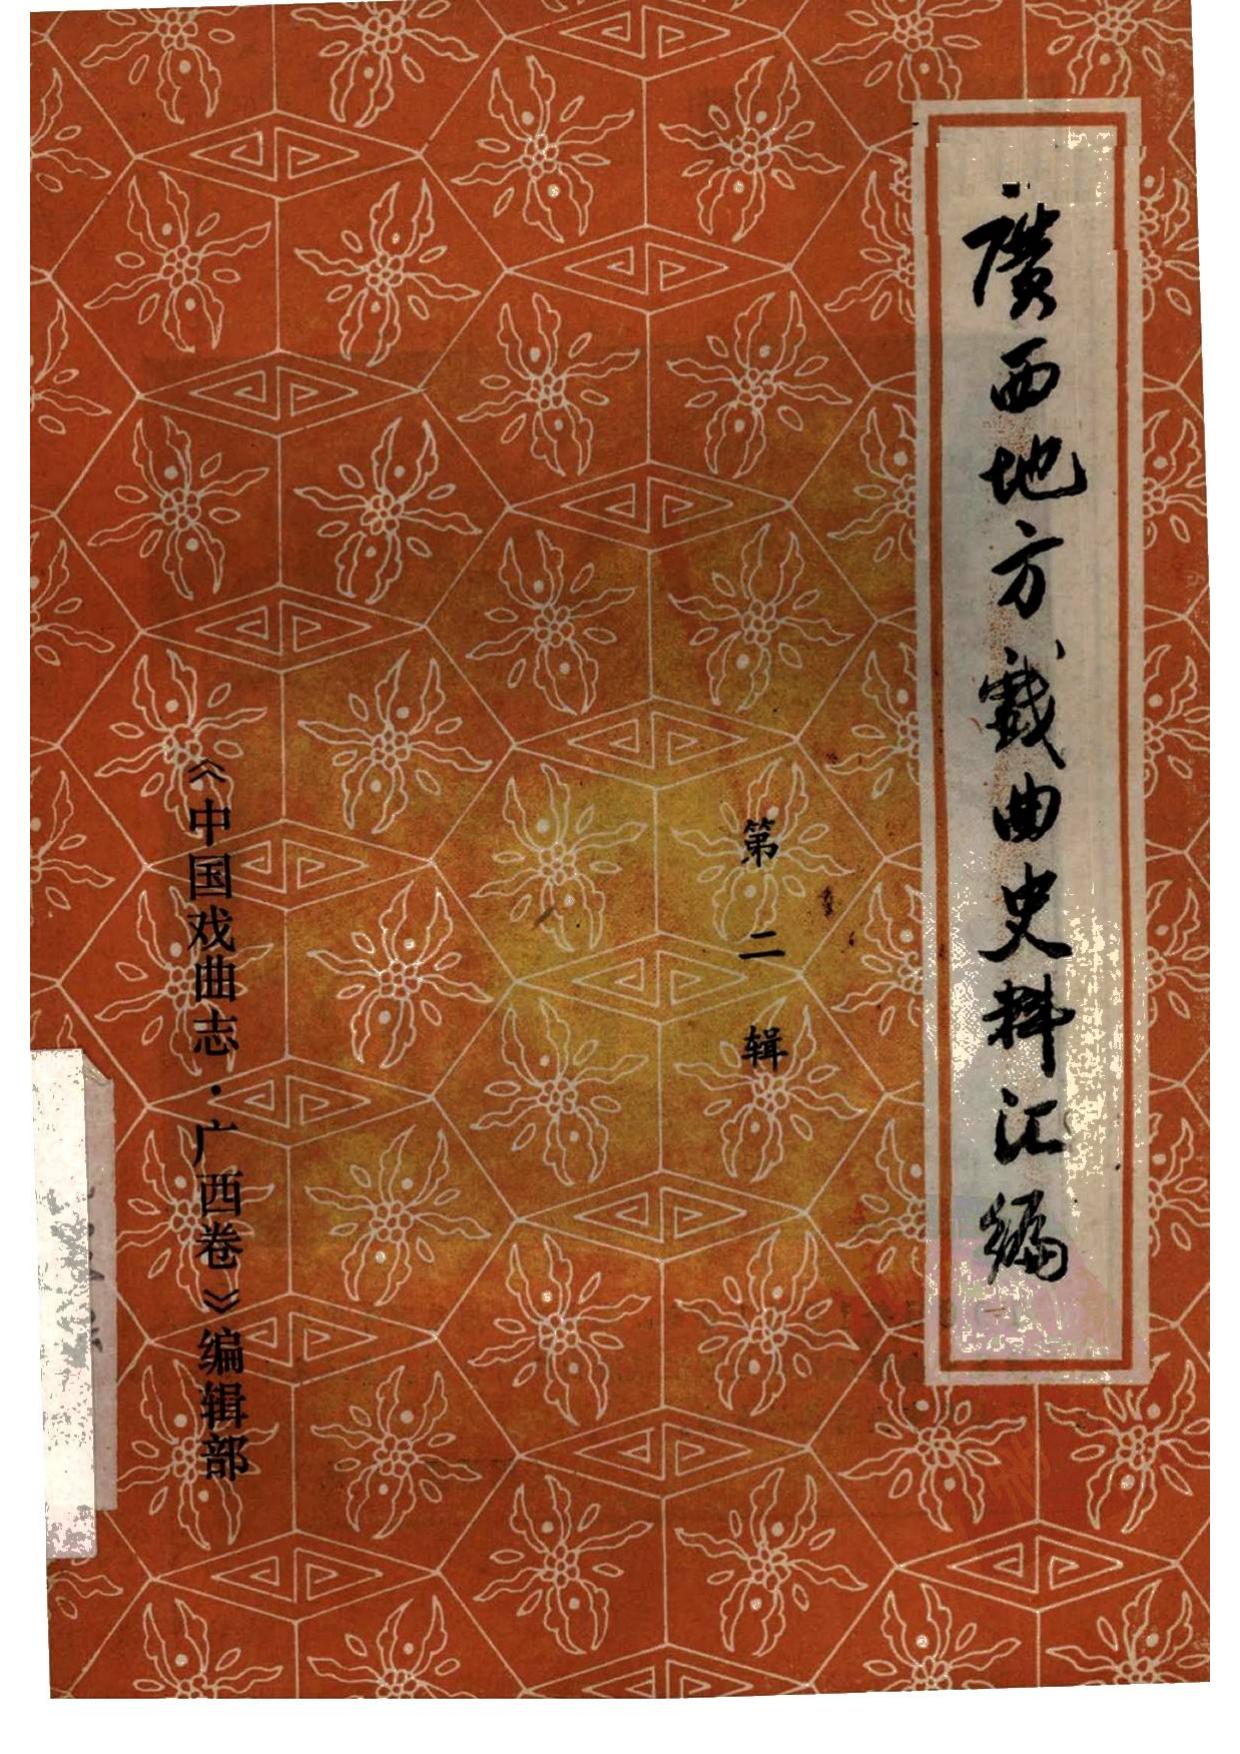 廣西地方戲曲史料汇編
第二辑
《中国戏曲志·广西卷》编辑部